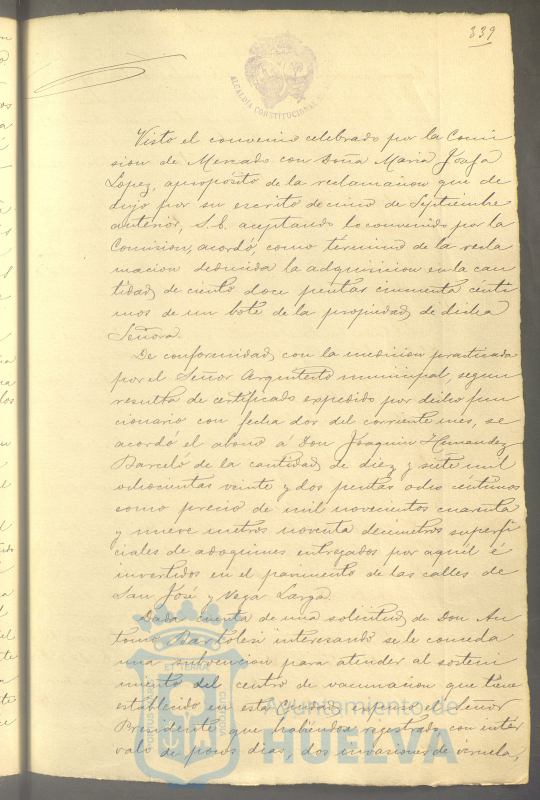 339
ALCALDIA CONSTITUCIONAL
Visto el convenio celebrado por la Comi
sion de Mercado con Doña Maria Josefa
Lopez, aproposito de la reclamacion que de
dujo por su escrito de cinco de Septiembre
anterior, S.E. aceptando lo convenido por la
Comision, acordó como término de la recla
macion deducida la adquisicion en la can
tidad de ciento doce pesetas cincuenta centi
mos de un bote de la propiedad de dicha
Señora.
De conformidad con la medicion practicada
por el Señor Arquitecto municipal, segun
resulta de certificado expedido por dicho fun
cionario con fecha dos del corriente mes, se
acordó el abono á Don Joaquin Hernandez
Barceló de la cantidad de diez y siete mil
ochocientas veinte y dos pesetas ocho céntimos
como precio de mil novecientos cuarenta
y nueve metros noventa decimetros superfi
ciales de adoquines entregados por aquel é
invertidos en el pavimento de las calles de
San José y Vega Larga.
Dada cuenta de una solicitud de Don An
tonio interesando se le conceda
una subvencion para atender al sosteni
miento del centro de vacunacion que tiene
establecido en esta Ciudad, expuso el Señor
Presidente que habiendose registrado con inter
valo de pocos dias, dos invasiones de viruela,
Ayuntamiento de
HUELVA